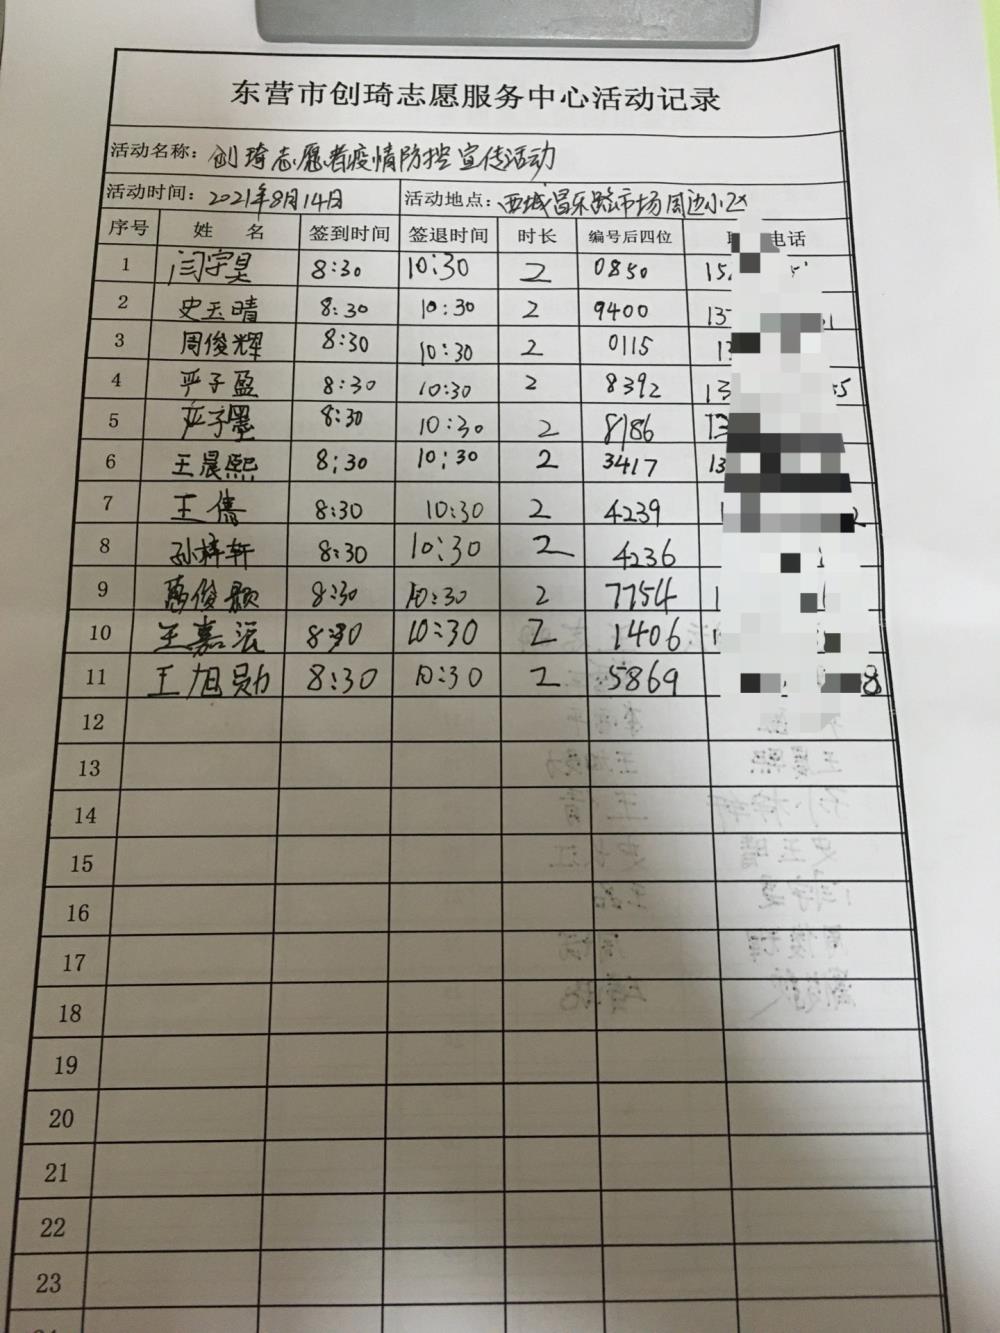 东营市创琦志愿服务中心活动记录
活动名称：创琦志愿者疫情防控宣传活动
活动时间：2021年8月14日 活动地点：西城昌乐路市场周边小区
序号 姓名 签到时间 签退时间 时长 编号后四位 电话
1 闫宇昊 8:30 10:30 2 0850 15
2 史玉晴 8:30 10:30 2 9400 13
3 周俊辉 8:30 10:30 2 0115 13
4 严子盈 8:30 10:30 2 8392 13
5 严子墨 8:30 10:30 2 8186 13
6 王晨熙 8:30 10:30 2 3417 13
7 王倩 8:30 10:30 2 4239 1
8 孙梓轩 8:30 10:30 2 4236
9 俊颖 8:30 10:30 2 7754 1
10 王嘉沅 8:30 10:30 2 1406 1
11 王旭勋 8:30 10:30 2 5869 8
12
13
14
15
16
17
18
19
20
21
22
23